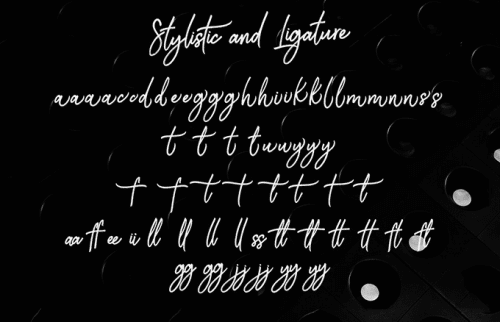 Stylistic and Ligature
aaaaccddeeggghhiiKKllmmnnss
t t t t u u y y y
f f t t t t t t
aa ff ee ii ll ll ll ll ss tt tt tt tt ft ft
gg gg jj jj yy yy